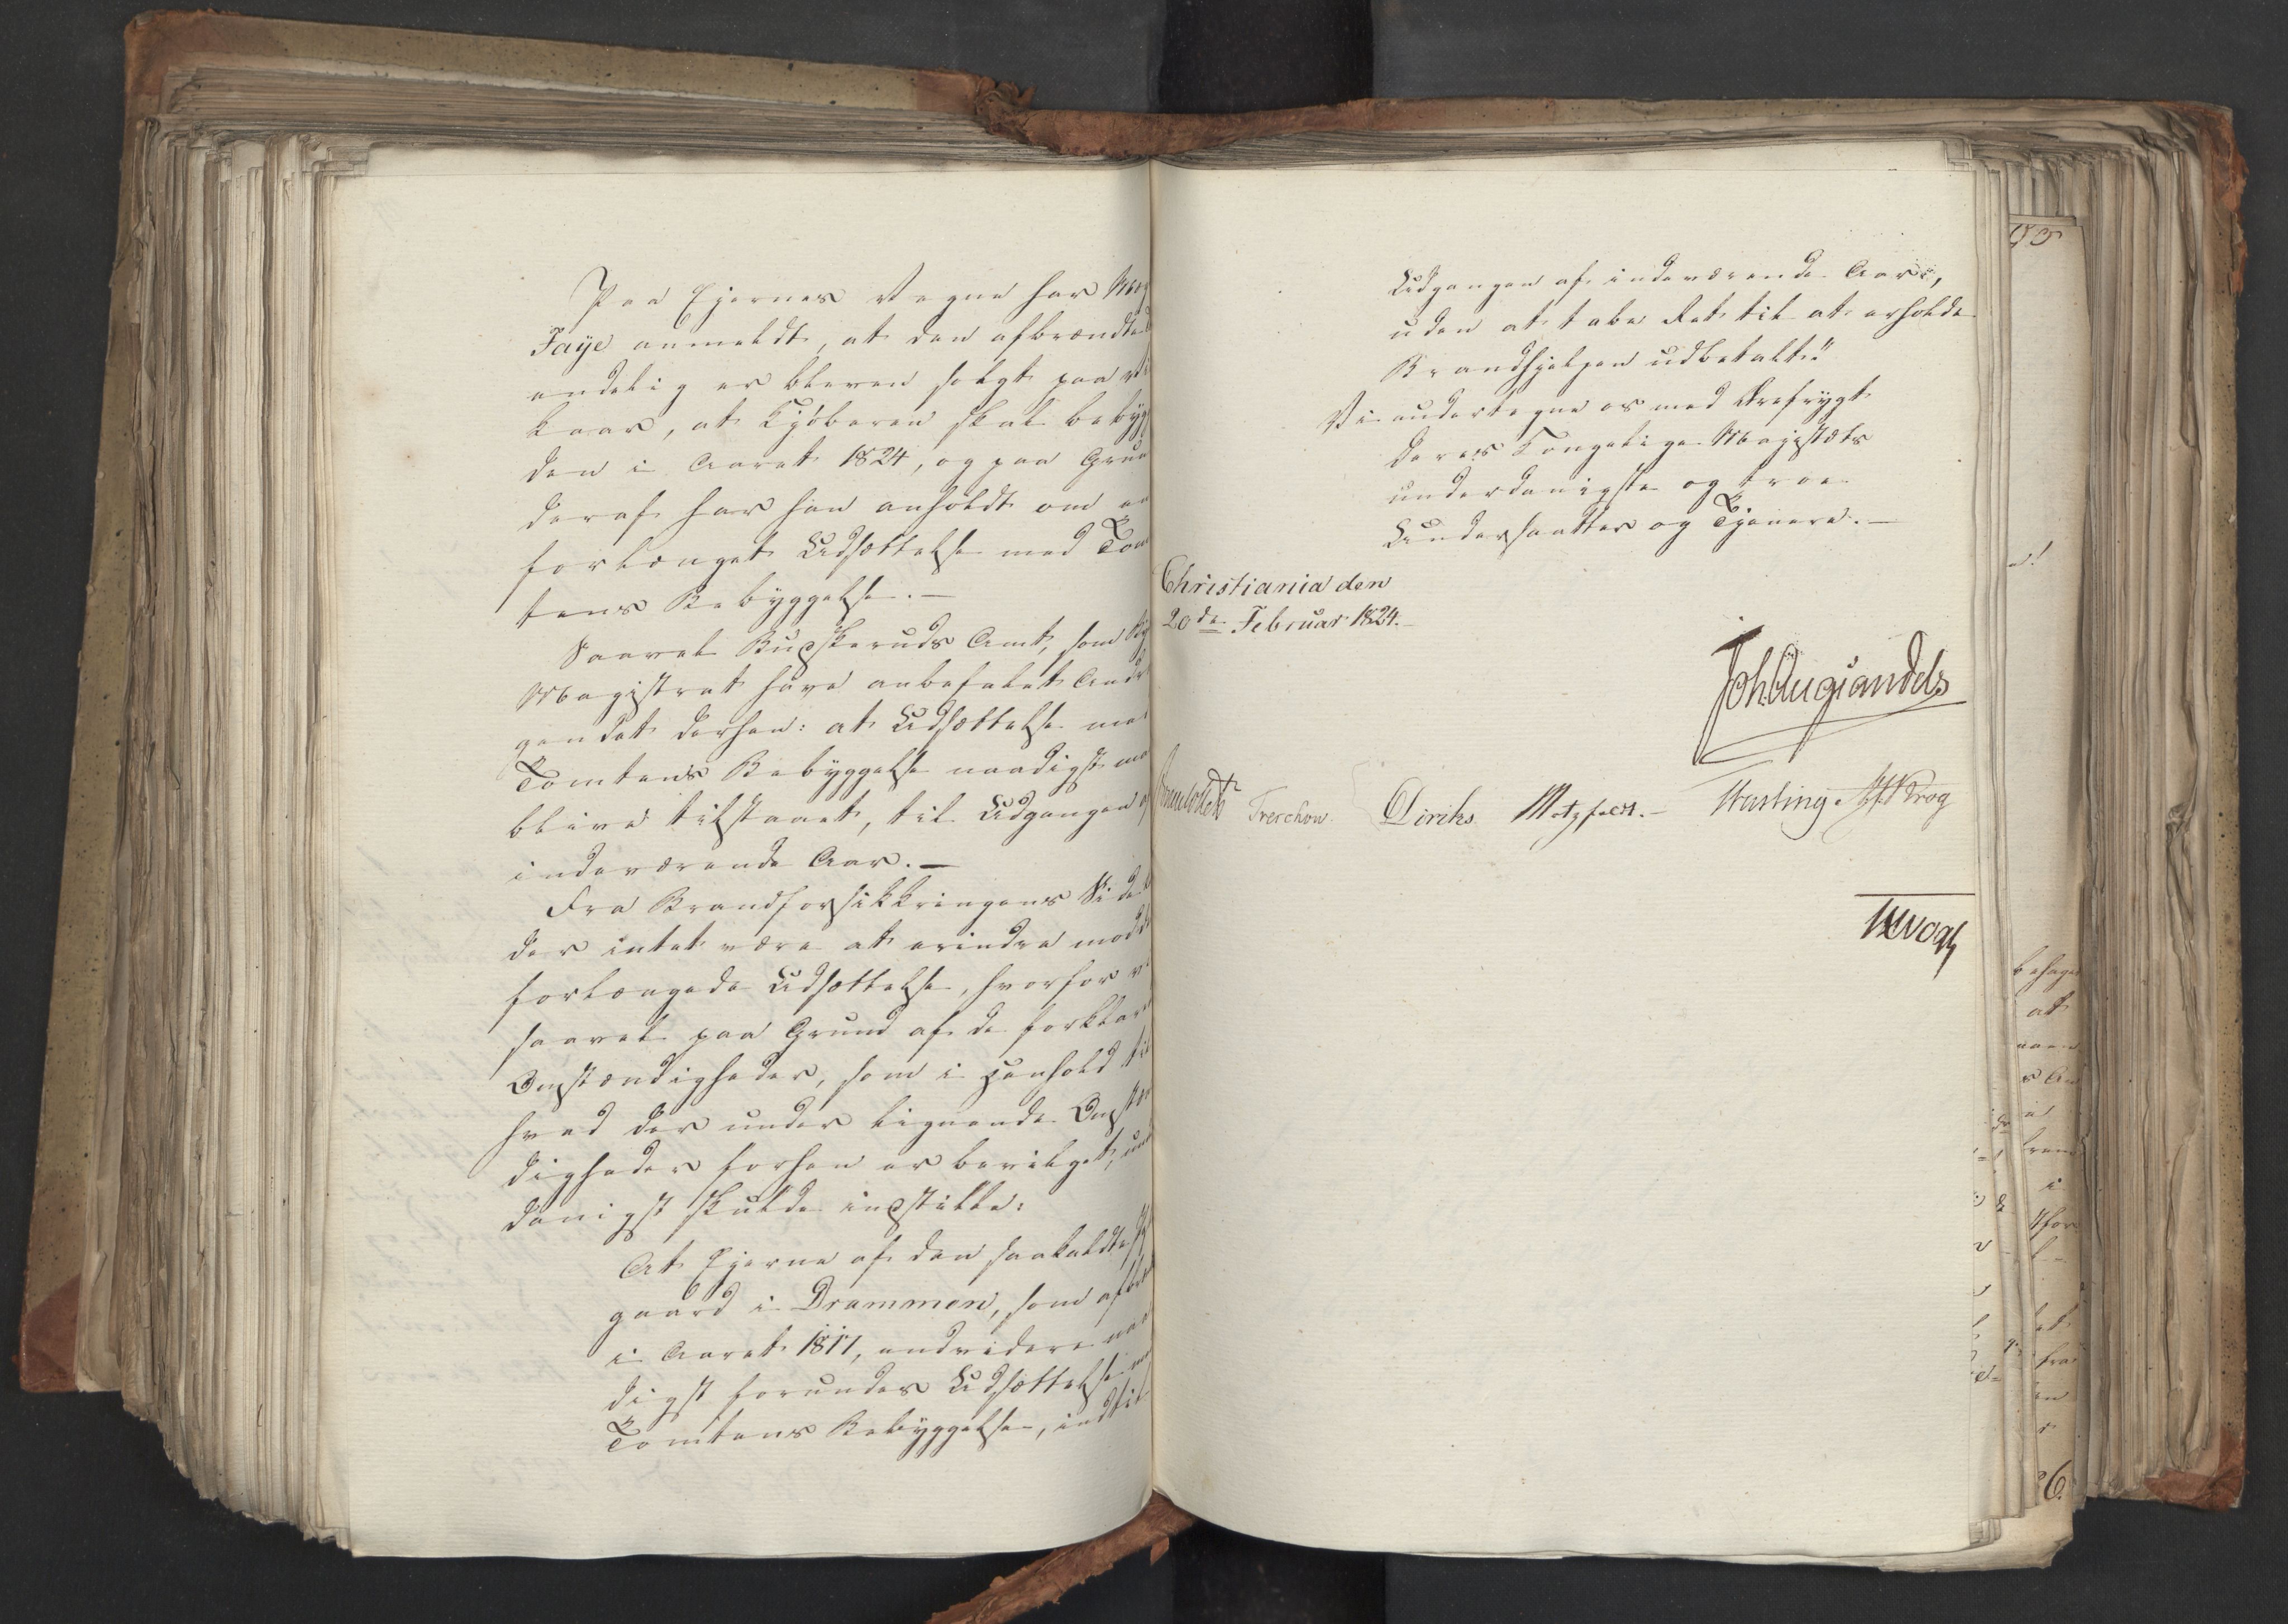 Paa Ejernes Vegne har
Faÿe anmeldt, at den afbrændte
endelig er bleven solgt paa Vil
kaar, at Kjøberen skal bebyg
den i Aaret 1824, og paa Grun
deraf har han anholdt om en
forlænget Udsættelse med Tom
tens Bebyggelse. —
Saavel Buskeruds Amt, som By
Magistrat have anbefalet Andra
gendet derhen: at Udsættelse med
Tomtens Bebyggelse naadigst maa
blive tilstaaet, til Udgangen af
indeværende Aar. —
Fra Brandforsikkringens Side
der intet være at erindre mod d
forlængede Udsættelse, hvorfor vi
saavel paa Grund af de forklare
Omstændigheder, som i Henhold til
hvad der under lignende Omstæn
digheder forhen er bevilget, und
danigst skulde indstille:
At Ejerne af den saakaldte
gaard i Drammen, som afbræ
i Aaret 1817, endvidere naa
digst forundes Udsættelse med
Tomtens Bebyggelse, indtil
Udgangen af indeværende Aar,
uden at tabe Ret til at erholde
Brandhjelpen udbetalt."
Vi undertegne os med Ærefrygt
Deres Kongelige Majestæts
underdanigste og troe
Undersaatter og Tjenere. —
Christiania den
20de Februar 1824.
Joh. Aug. Sandels
Sommerfeldt Treschow. Diriks Motzfeldt. — Fasting. Krog
Vogt